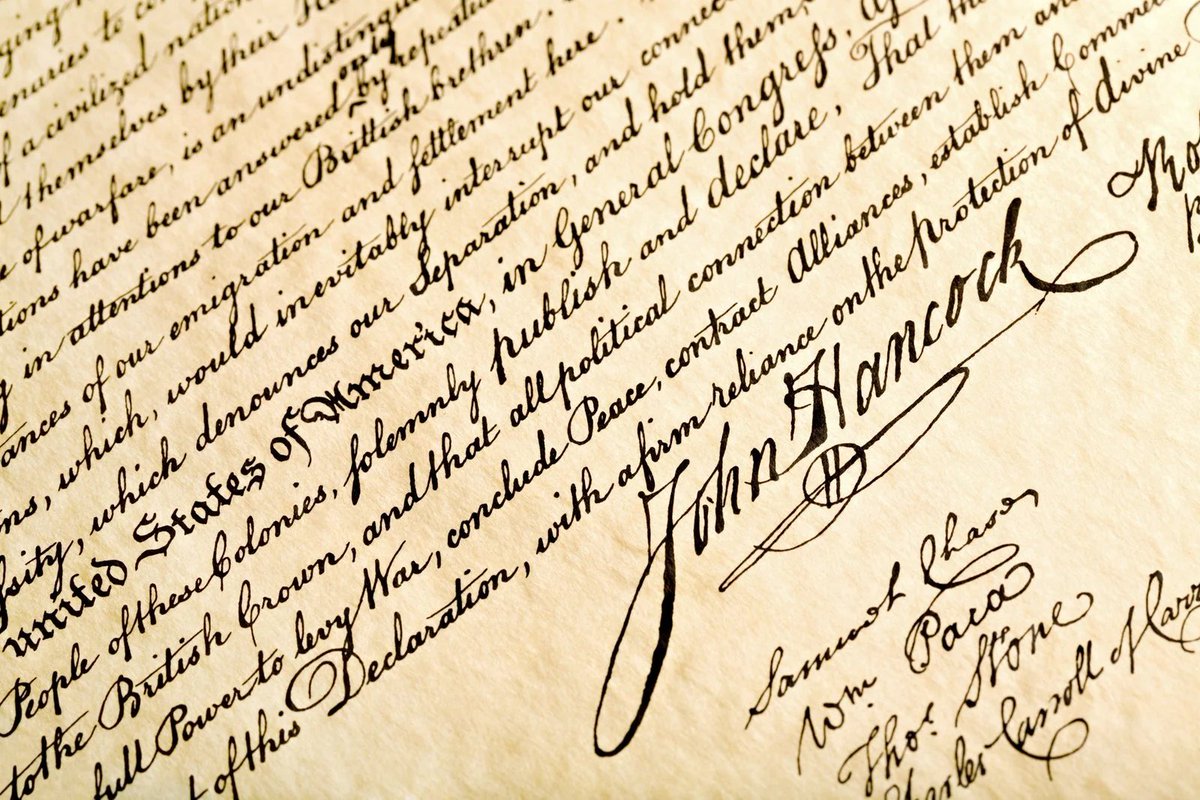 ging
enaries to co
of a civilized nati
themselves by their
e of warfare, is an undistingui
only
tions have been answered by repeated
g in attentions to our Brittish brethren.
tances of our emigration and ſettlement here.
ns, which, would inevitably interrupt our connec
ſsity, which denounces our Separation, and hold them,
united States of America, in General Congreſs, A
People of these Colonies, ſolemnly publish and declare, That th
to the British Crown, and that all political connection between them an
full Power to levy War, conclude Peace, contract Alliances, establish Comme
t of this Declaration, with a firm reliance on the protection of divine
John Hancock
Ro
Samuel Chase
Wm Paca
Thos. Stone
Charles Carroll of Carr